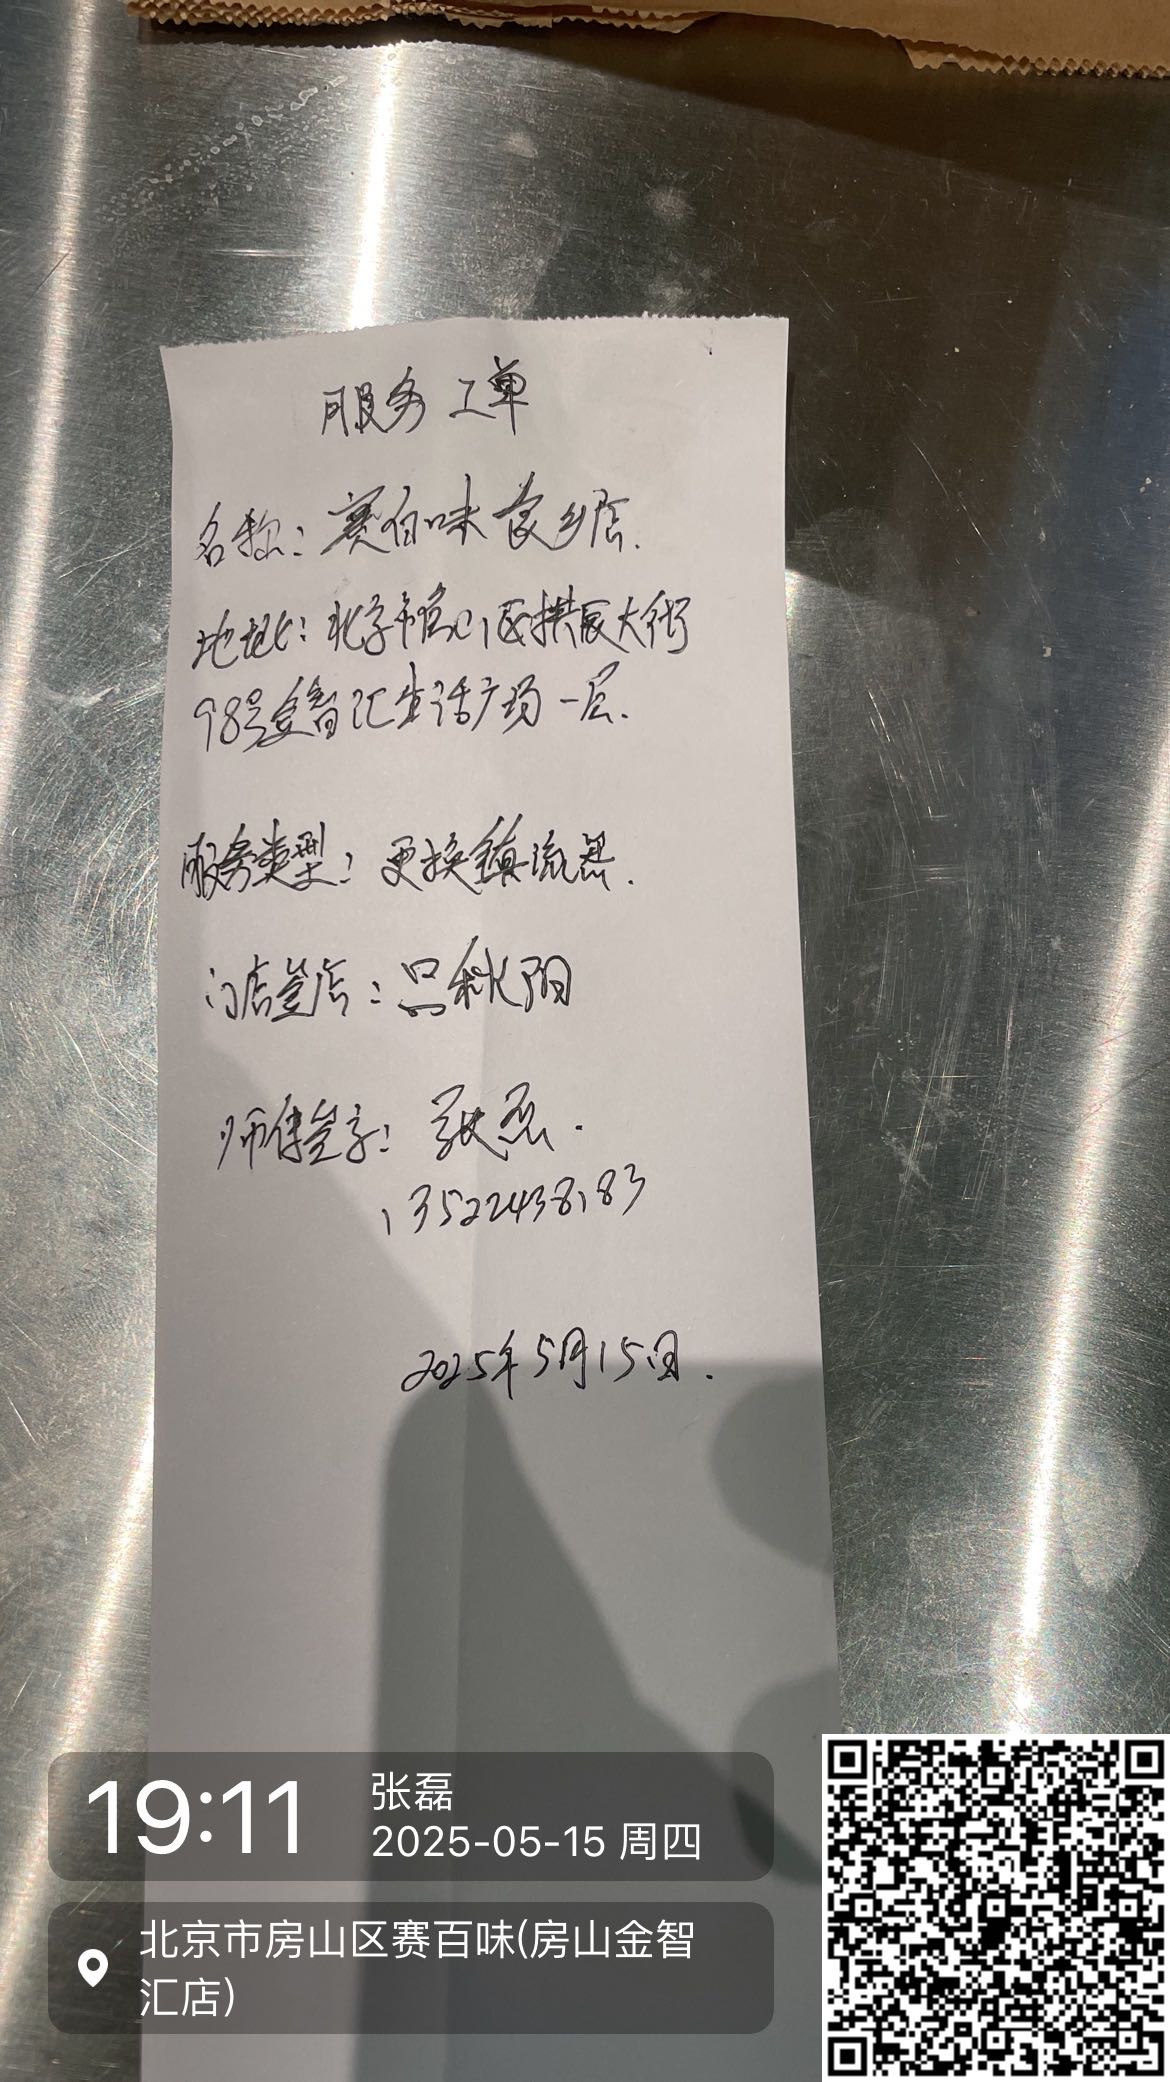 服务工单
名称：赛百味良乡店.
地址：北京市房山区拱辰大街
98号金智汇生活广场一层.
服务类型：更换镇流器.
门店签店：吕秋阳
师傅签字：张磊.
13522438183
2025年5月15日.
19:11
张磊
2025-05-15 周四
北京市房山区赛百味(房山金智
汇店)